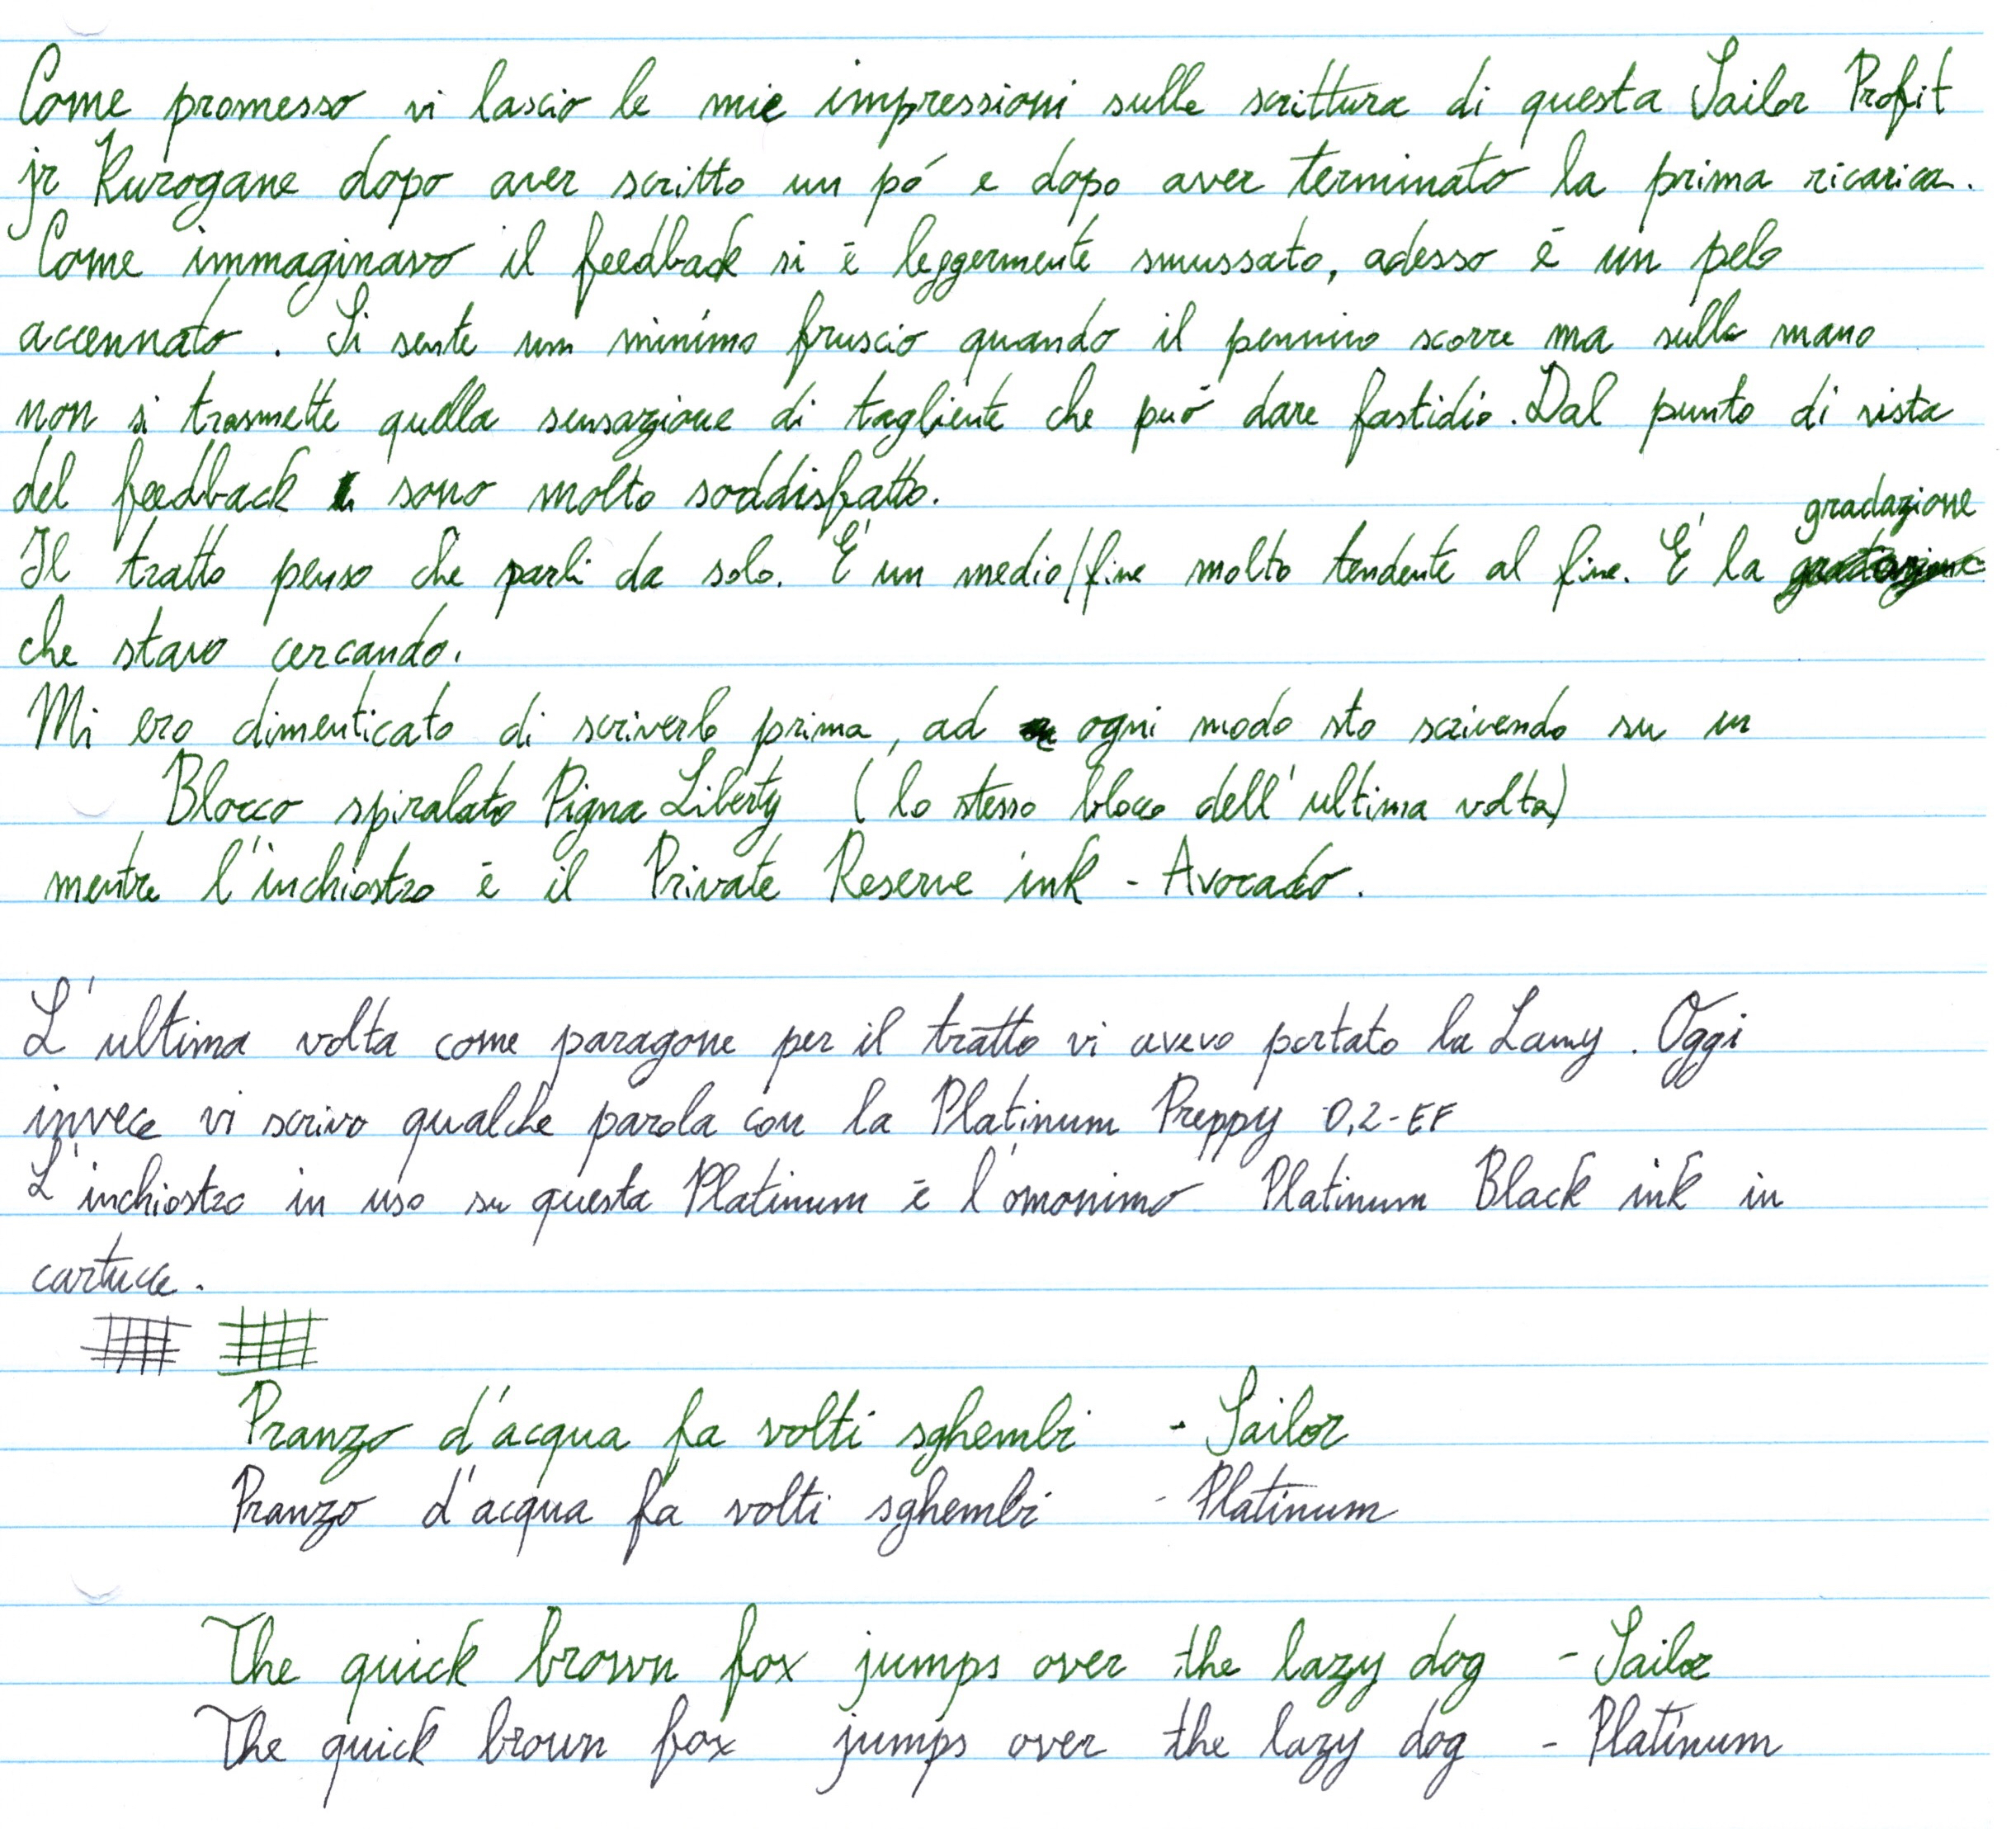 Come promesso vi lascio le mie impressioni sulla scrittura di questa Sailor Profit
jr Kurogane dopo aver scritto un pó e dopo aver terminato la prima ricarica.
Come immaginavo il feedback si è leggermente smussato, adesso è un pelo
accennato. Si sente un minimo fruscio quando il pennino scorre ma sulla mano
non si trasmette quella sensazione di tagliente che può dare fastidio. Dal punto di vista
del feedback sono molto soddisfatto.
Il tratto penso che parli da solo. E' un medio/fine molto tendente al fine. E' la gradazione
che stavo cercando.
Mi ero dimenticato di scriverlo prima, ad ogni modo sto scrivendo su un
Blocco spiralato Pigna Liberty (lo stesso blocco dell'ultima volta)
mentre l'inchiostro è il Private Reserve ink - Avocado.
L'ultima volta come paragone per il tratto vi avevo portato la Lamy. Oggi
invece vi scrivo qualche parola con la Platinum Preppy 0,2-EF
L'inchiostro in uso su questa Platinum è l'omonimo Platinum Black ink in
cartucce.
Pranzo d'acqua fa volti sghembi - Sailor
Pranzo d'acqua fa volti sghembi - Platinum
The quick brown fox jumps over the lazy dog - Sailor
The quick brown fox jumps over the lazy dog - Platinum